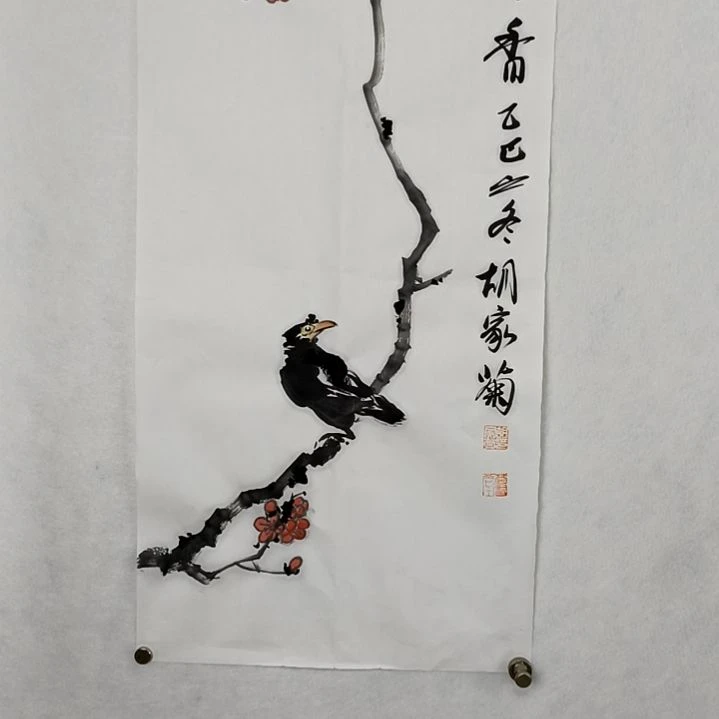 香乙巳之冬胡家菊